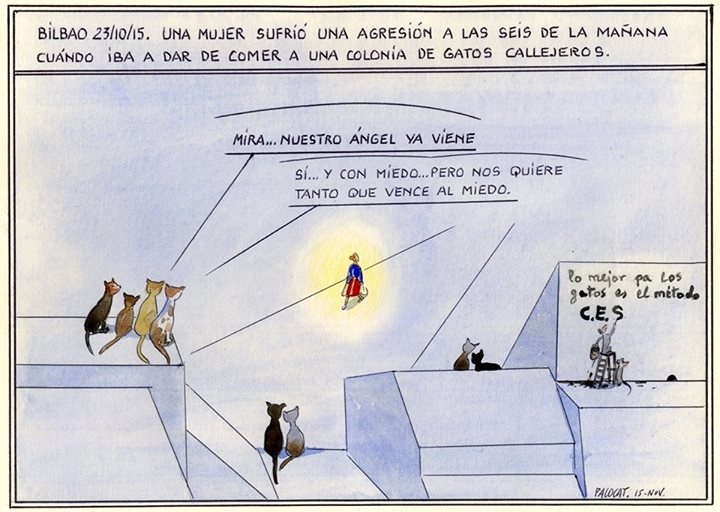 BILBAO 23/10/15. UNA MUJER SUFRIÓ UNA AGRESIÓN A LAS SEIS DE LA MAÑANA
CUÁNDO IBA A DAR DE COMER A UNA COLONIA DE GATOS CALLEJEROS.
MIRA... NUESTRO ÁNGEL YA VIENE
SÍ... Y CON MIEDO... PERO NOS QUIERE
TANTO QUE VENCE AL MIEDO.
lo mejor pa los
gatos es el método
C.E.S
PACOCAT. 15-NOV.